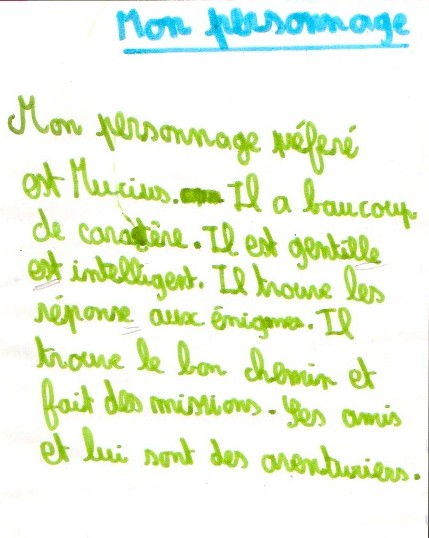 Mon personnage
Mon personnage péferé
est Mucius. Il a baucoup
de caratère. Il est gentille
est intelligent. Il trouve les
réponse aux énigmes. Il
trouve le bon chemin et
fait des missions. Ses amis
et lui sont des aventuriers.